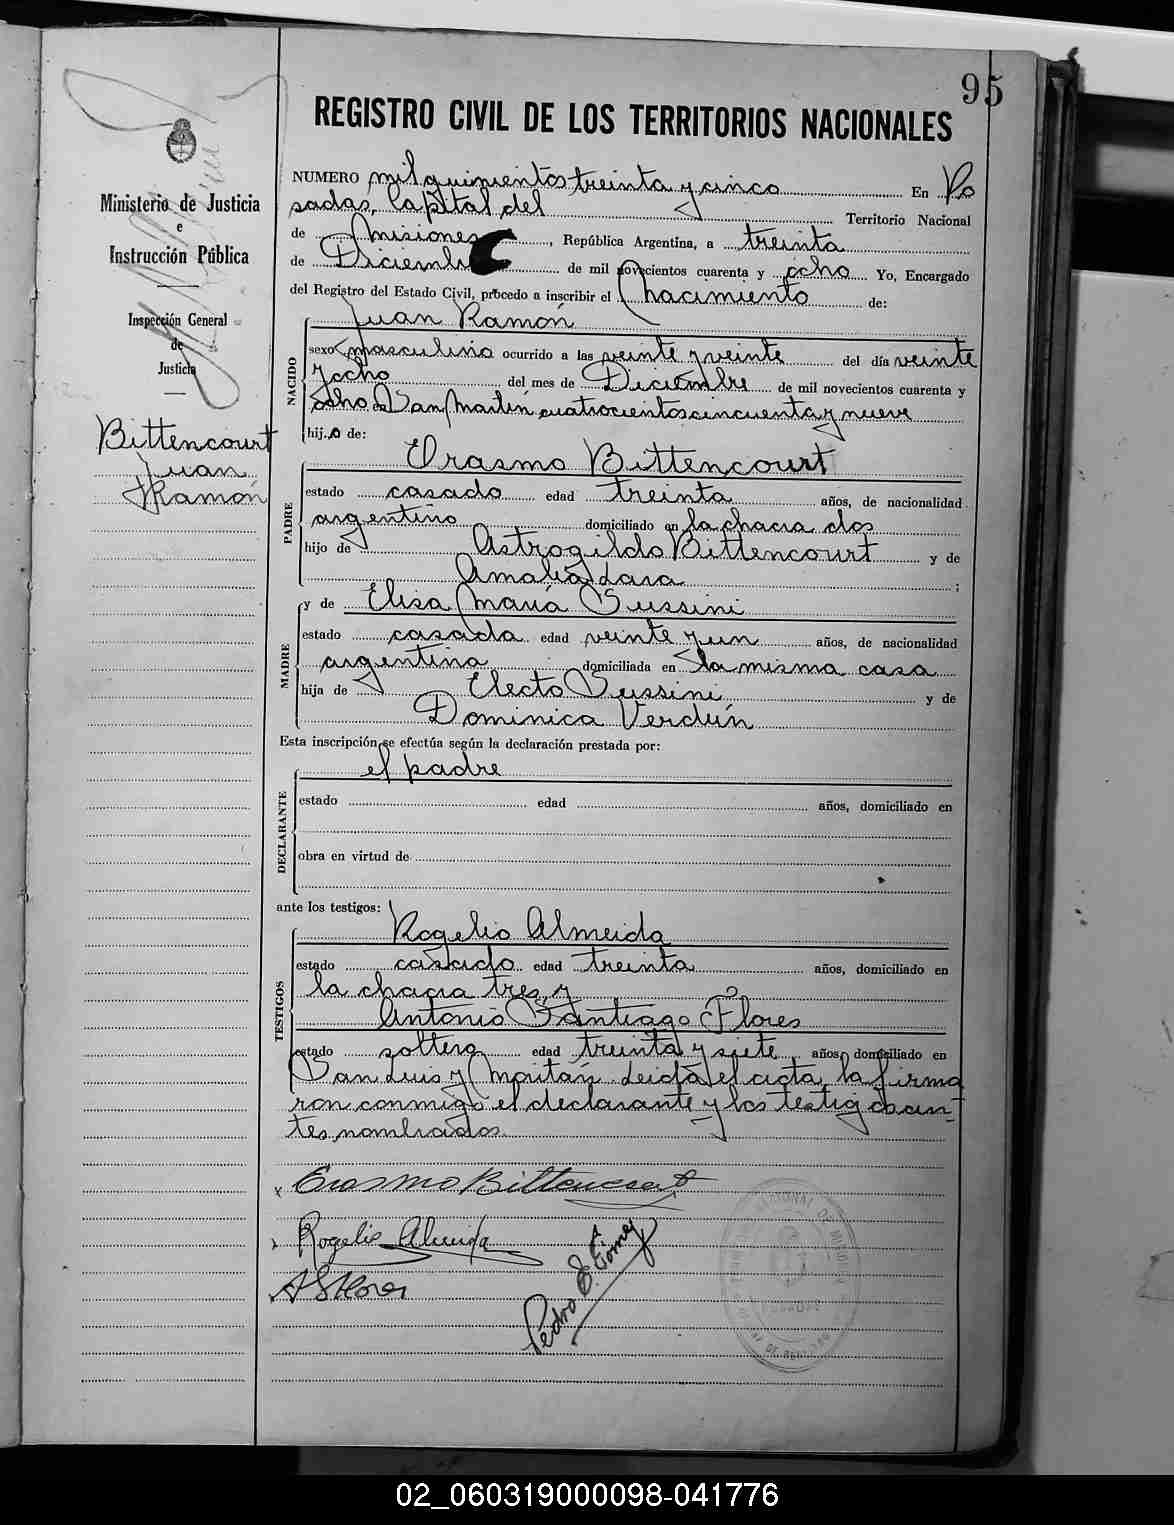 95
REGISTRO CIVIL DE LOS TERRITORIOS NACIONALES
Ministerio de Justicia
e
Instrucción Pública
Inspección General
de
Justicia
Bittencourt
Juan
Ramón
NUMERO mil quinientos treinta y cinco En Po
sadas, Capital del Territorio Nacional
de Misiones, República Argentina, a treinta
de Diciembre de mil novecientos cuarenta y ocho Yo, Encargado
del Registro del Estado Civil, procedo a inscribir el nacimiento de:
Juan Ramón
NACIDO
sexo masculino ocurrido a las veinte y veinte del día veinte
y ocho del mes de Diciembre de mil novecientos cuarenta y
ocho en San Martín cuatrocientos cincuenta y nueve
hijo de:
Erasmo Bittencourt
PADRE
estado casado edad treinta años, de nacionalidad
argentino domiciliado en la chacra dos
hijo de Astrogildo Bittencourt y de
Amalia Lara ;
y de Elisa María Bussini
MADRE
estado casada edad veinte y un años, de nacionalidad
argentina domiciliada en la misma casa
hija de Electo Bussini y de
Dominica Verdún
Esta inscripción se efectúa según la declaración prestada por:
el padre
DECLARANTE
estado edad años, domiciliado en
obra en virtud de
ante los testigos:
Rogelio Almeida
TESTIGOS
estado casado edad treinta años, domiciliado en
la chacra tres, y
Antonio Santiago Flores
estado soltero edad treinta y siete años, domiciliado en
San Luis y Moritán. Leida el acta, la firma
ron conmigo el declarante y los testigos an-
tes nombrados.
Erasmo Bittencourt
Rogelio Almeida
A S Flores
Pedro E. Gómez
02_060319000098-041776